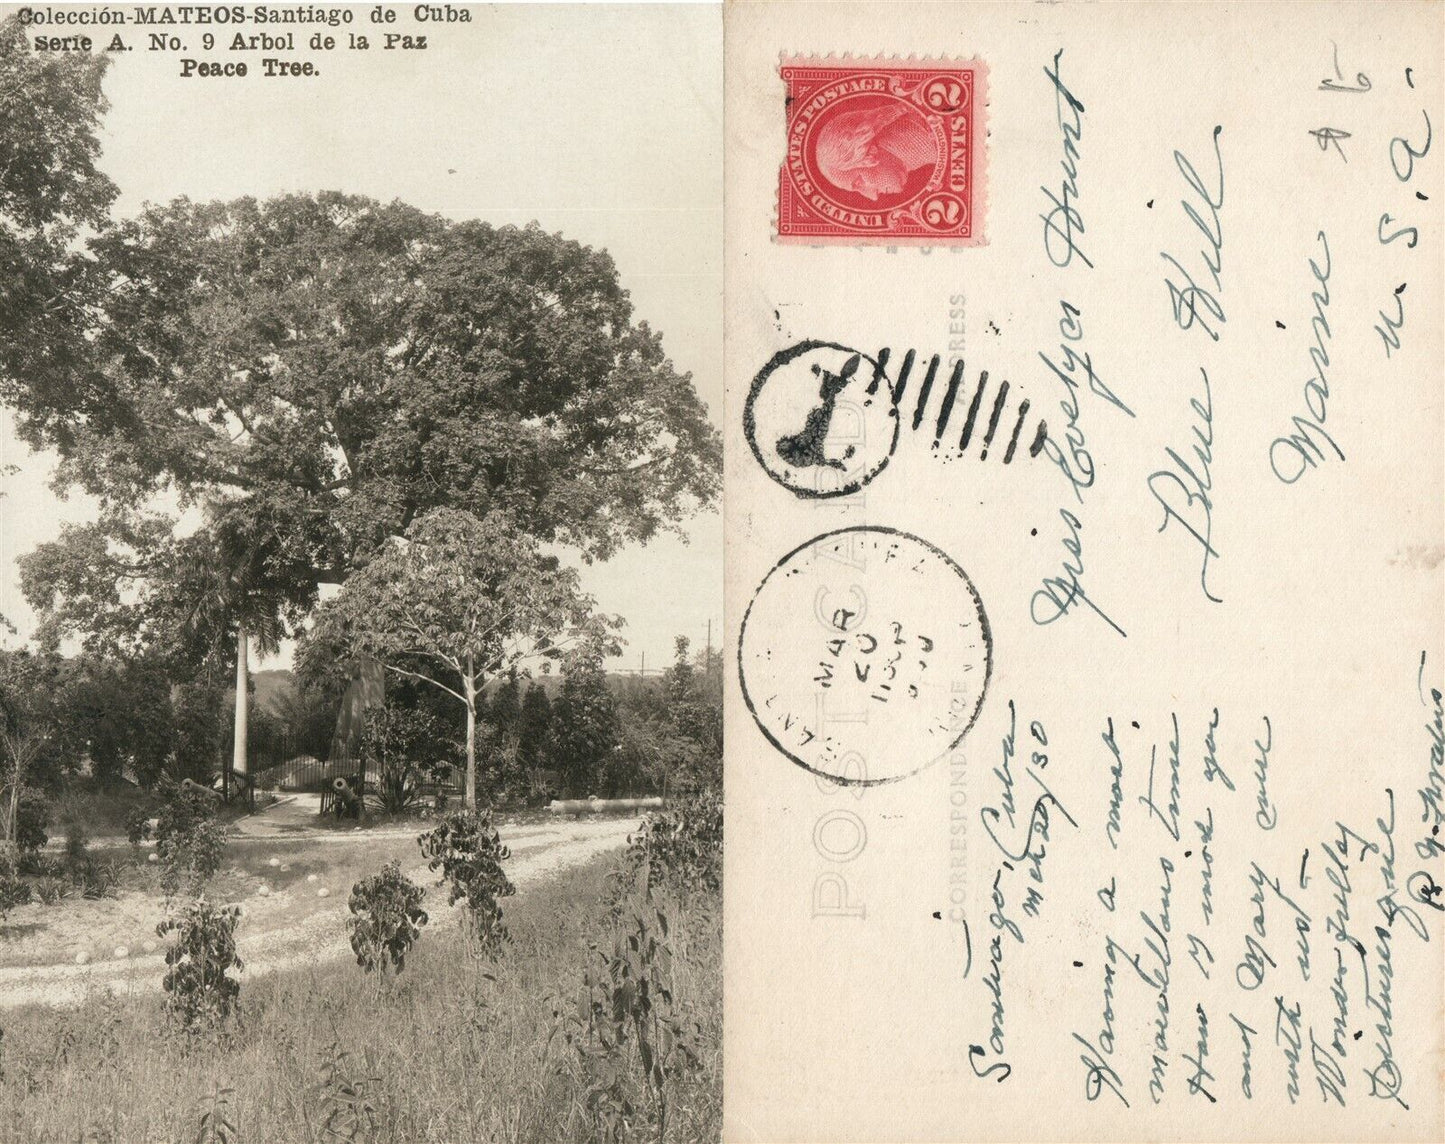 Colección-MATEOS-Santiago de Cuba
Serie A. No. 9 Arbol de la Paz
Peace Tree.
UNITED STATES POSTAGE
WASHINGTON
2 CENTS 2
POST CARD
CORRESPONDENCE
ADDRESS
MAR
20
1930
Miss Evelyn Hunt
Blue Hill
Maine
U.S.A.
Santiago, Cuba
Mch 20/30
Having a most
marvellous time
How I wish you
and Mary were
with us—
Wonderfully
Picturesque